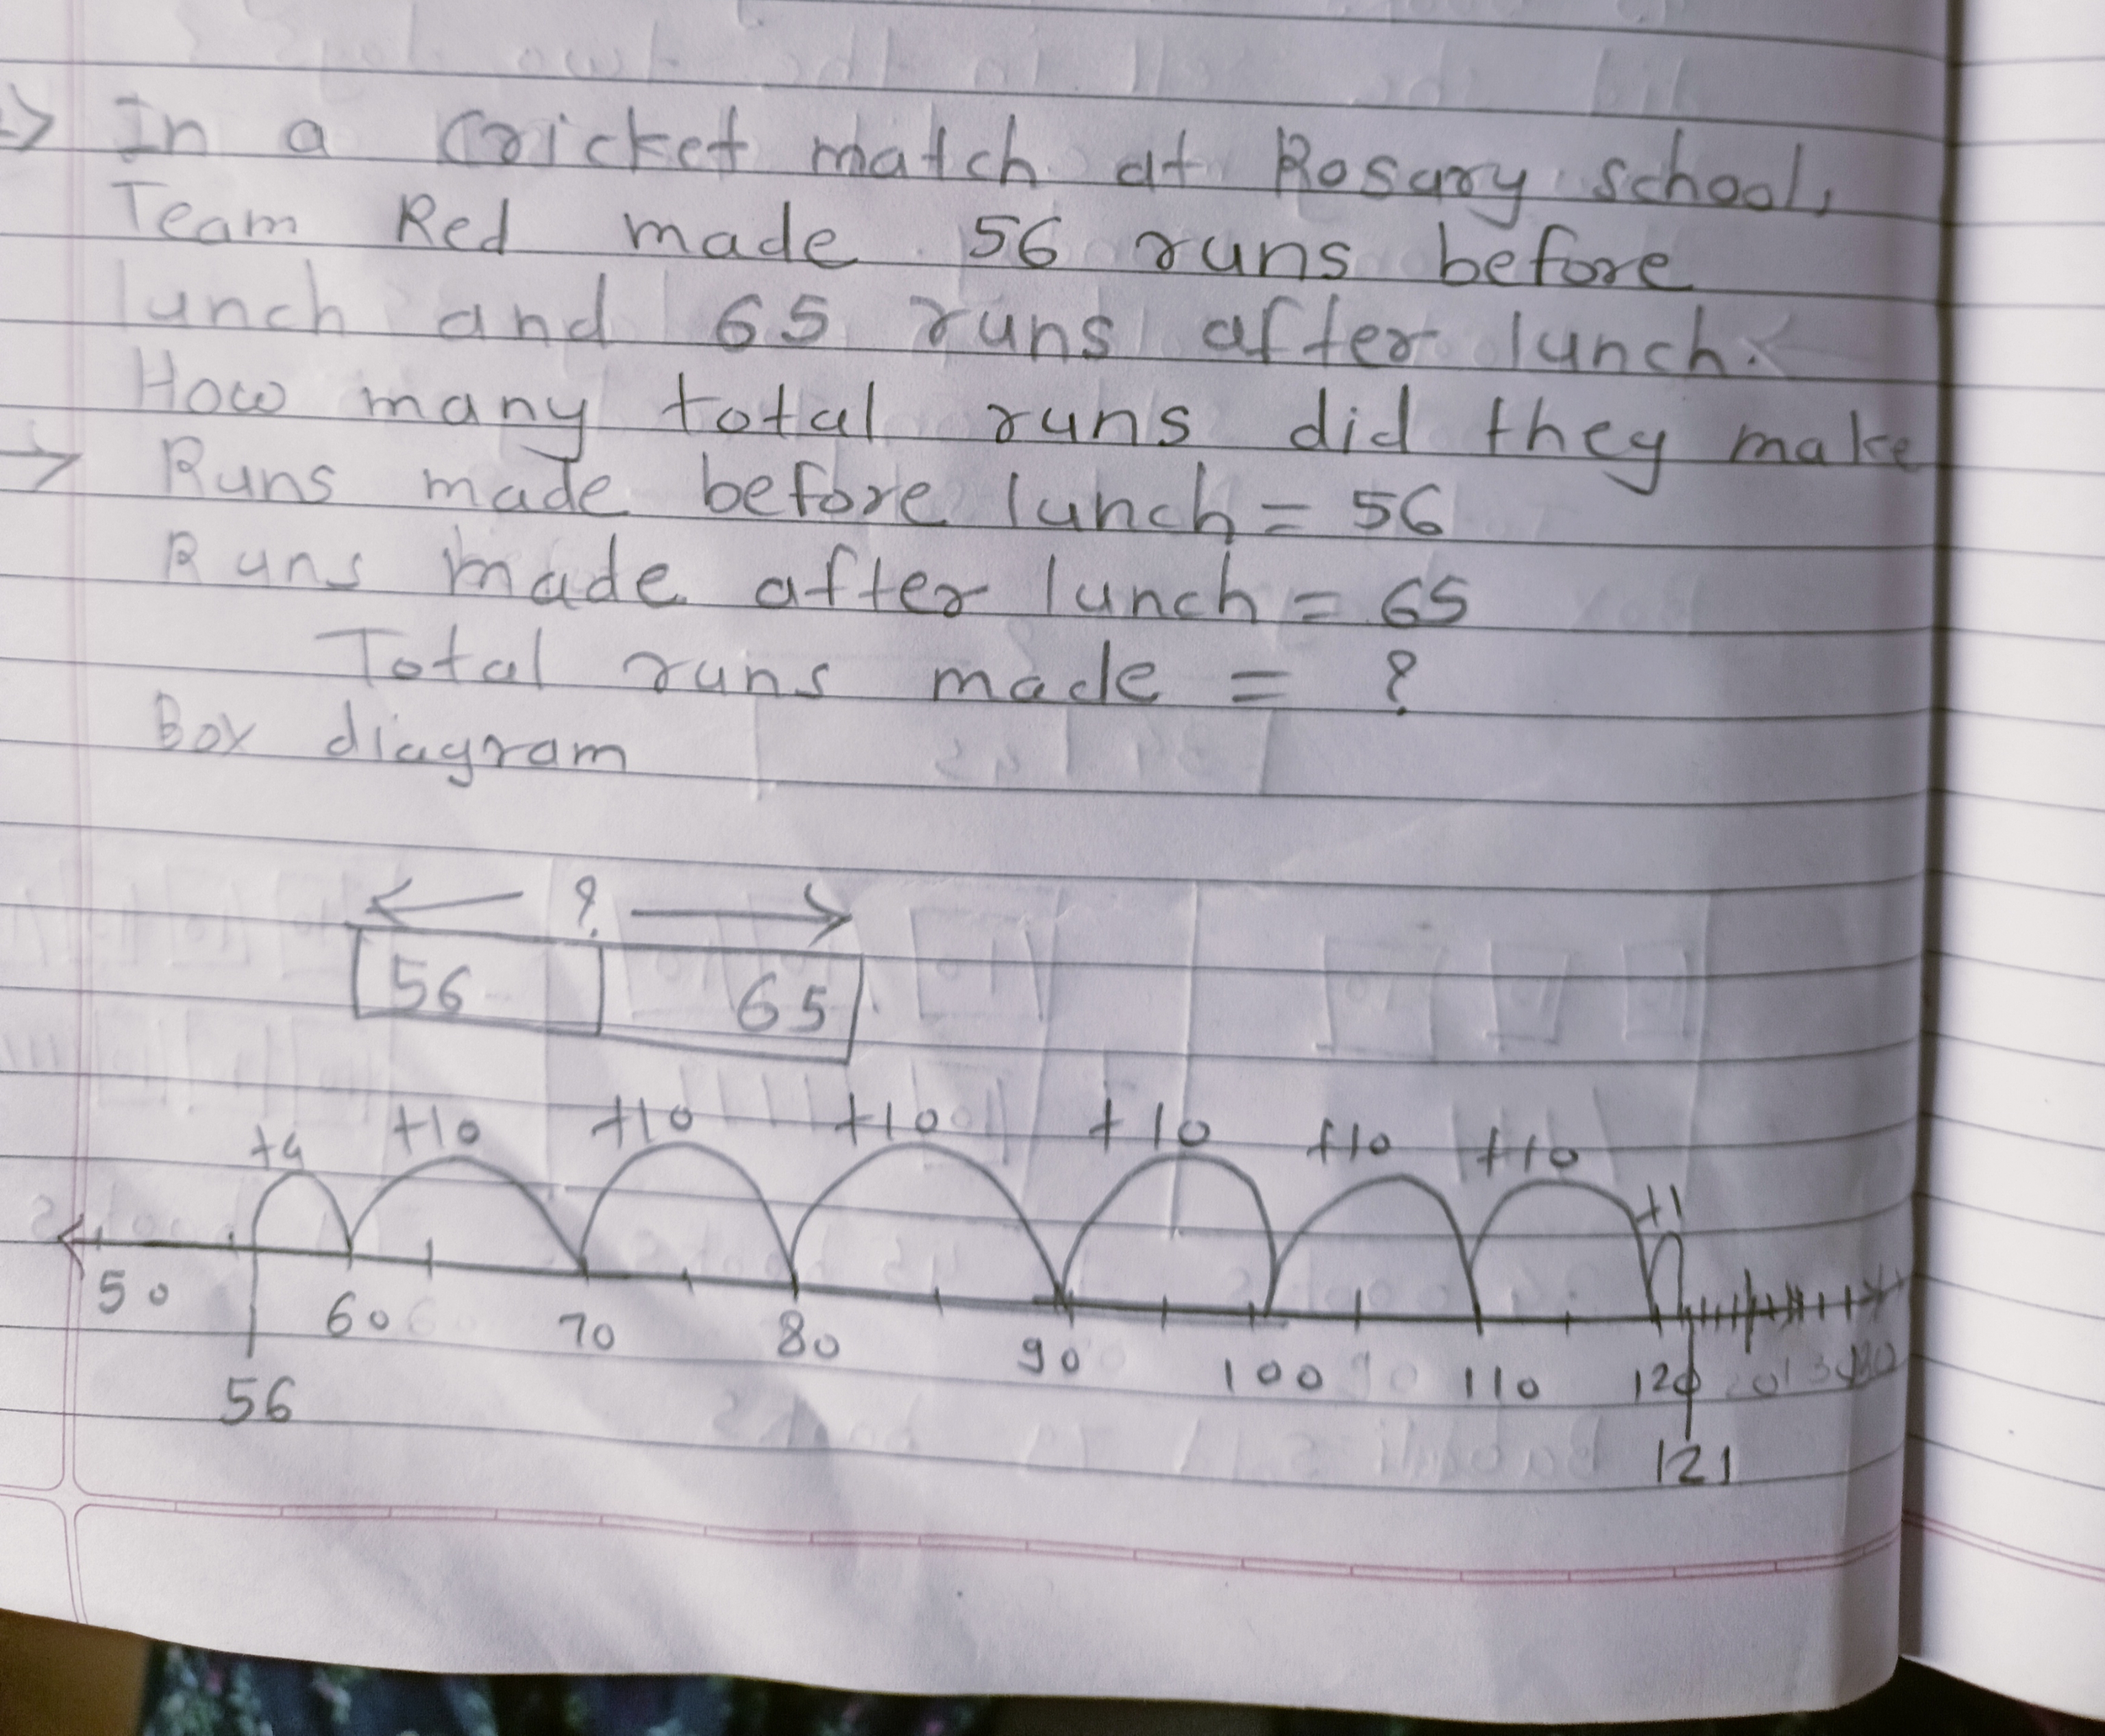 In a Cricket match at Rosary school,
Team Red made 56 runs before
lunch and 65 runs after lunch.
How many total runs did they make
→ Runs made before lunch = 56
Runs made after lunch = 65
Total runs made = ?
Box diagram
← ? →
56 65
+4 +10 +10 +10 +10 +10 +10 +1
50 60 70 80 90 100 110 120
56 121